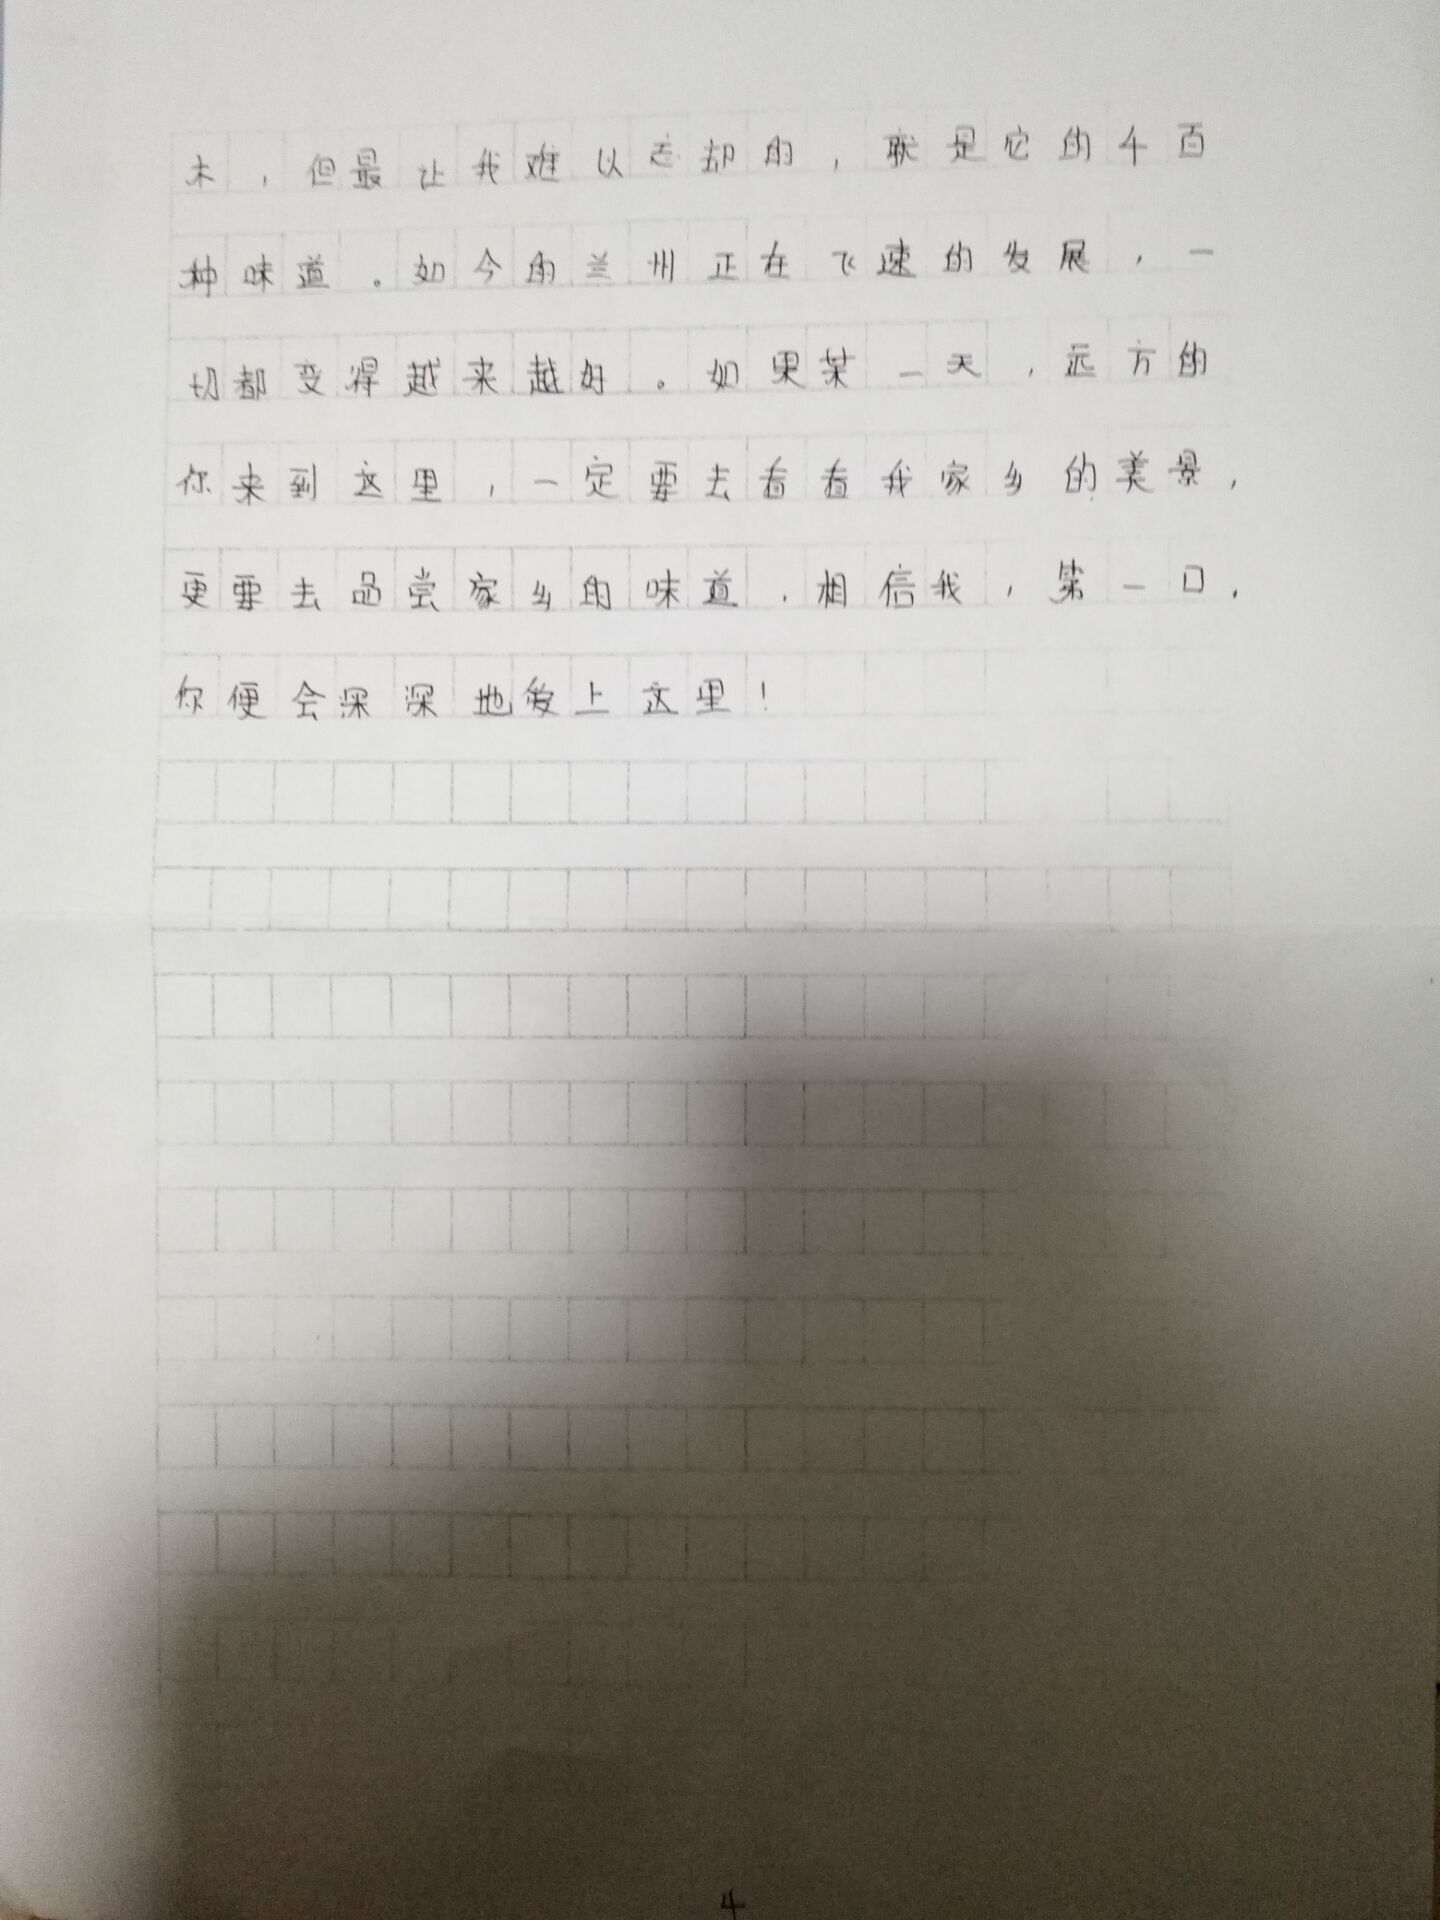 木，但最让我难以忘却的，就是它的千百
种味道。如今的兰州正在飞速的发展，一
切都变得越来越好。如果某一天，远方的
你来到这里，一定要去看看我家乡的美景，
更要去品尝家乡的味道，相信我，第一口，
你便会深深地爱上这里！
4